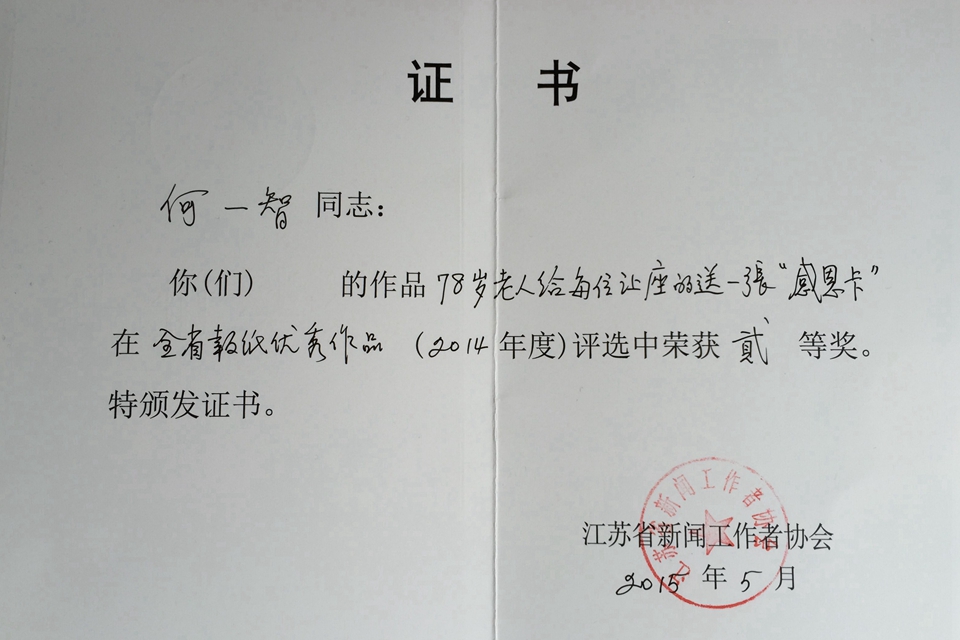 证 书
何一智 同志：
你(们) 的作品 78岁老人给每位让座的送一張“感恩卡”
在 全省報纸优秀作品 (2014年度)评选中荣获 貳 等奖。
特颁发证书。
江苏省新闻工作者协会
江苏省新闻工作者协会
2015 年 5 月